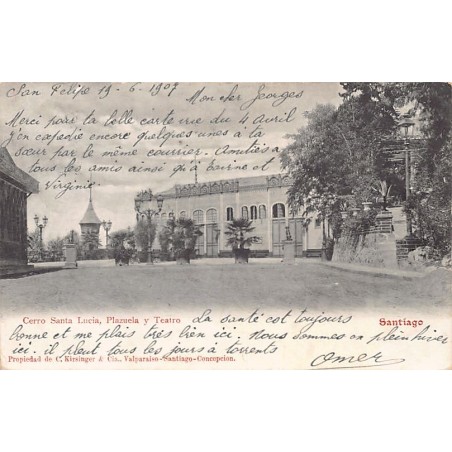 San Felipe 19-6-1907
Mon cher Georges
Merci pour ta belle carte vue du 4 avril
J'en expédie encore quelques unes à ta
soeur par le même courrier. Amitiées à
tous les amis ainsi qu'à et
Virginie
Cerro Santa Lucia, Plazuela y Teatro
Santiago
La santé est toujours
bonne et me plais très bien ici. Nous sommes en plein hiver
ici. il pleut tous les jours à torrents
Omer
Propiedad de C. Kirsinger & Cia., Valparaiso-Santiago-Concepcion.